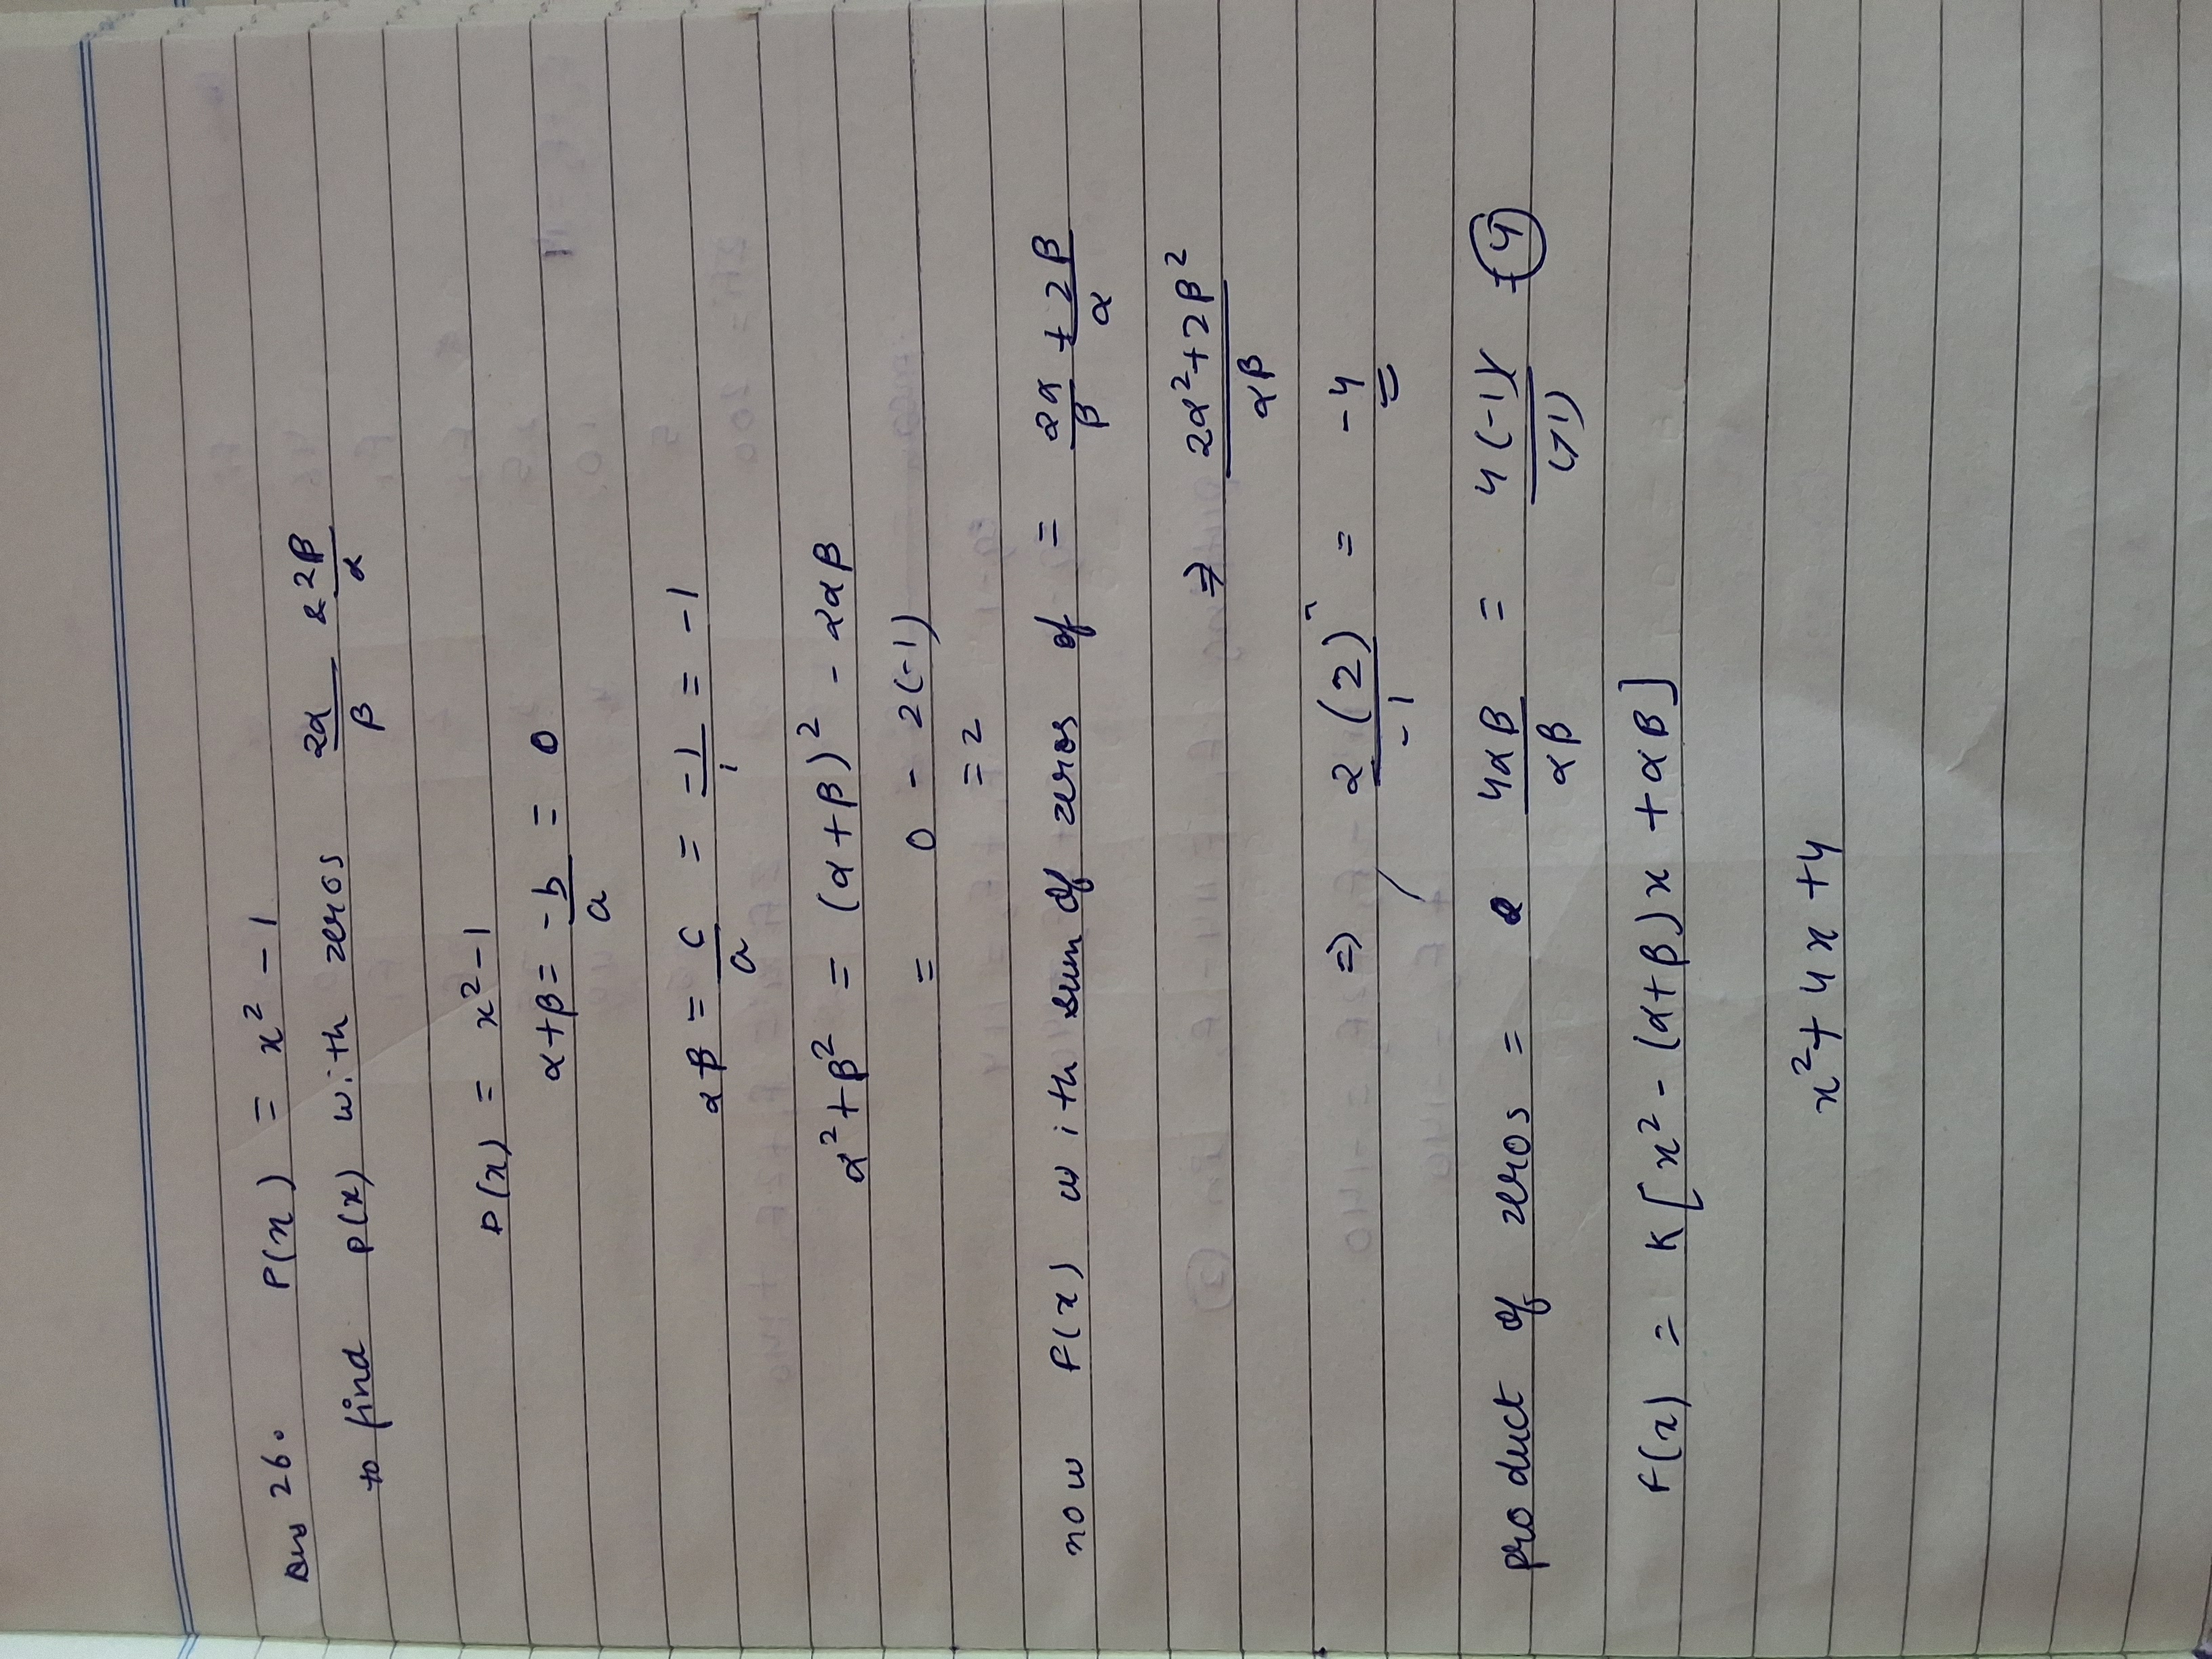 Ans 26. P(x) = x² - 1
to find P(x) with zeros 2α/β & 2β/α
P(x) = x² - 1
α + β = -b/a = 0
αβ = c/a = -1/1 = -1
α² + β² = (α + β)² - 2αβ
= 0 - 2(-1)
= 2
now F(x) with sum of zeros of = 2α/β + 2β/α
⇒ (2α² + 2β²)/αβ
⇒ 2(2)/-1 = -4
product of zeros = 4αβ/αβ = 4(-1)/(-1) 4
F(x) = K[x² - (α+β)x + αβ]
x² + 4x + 4